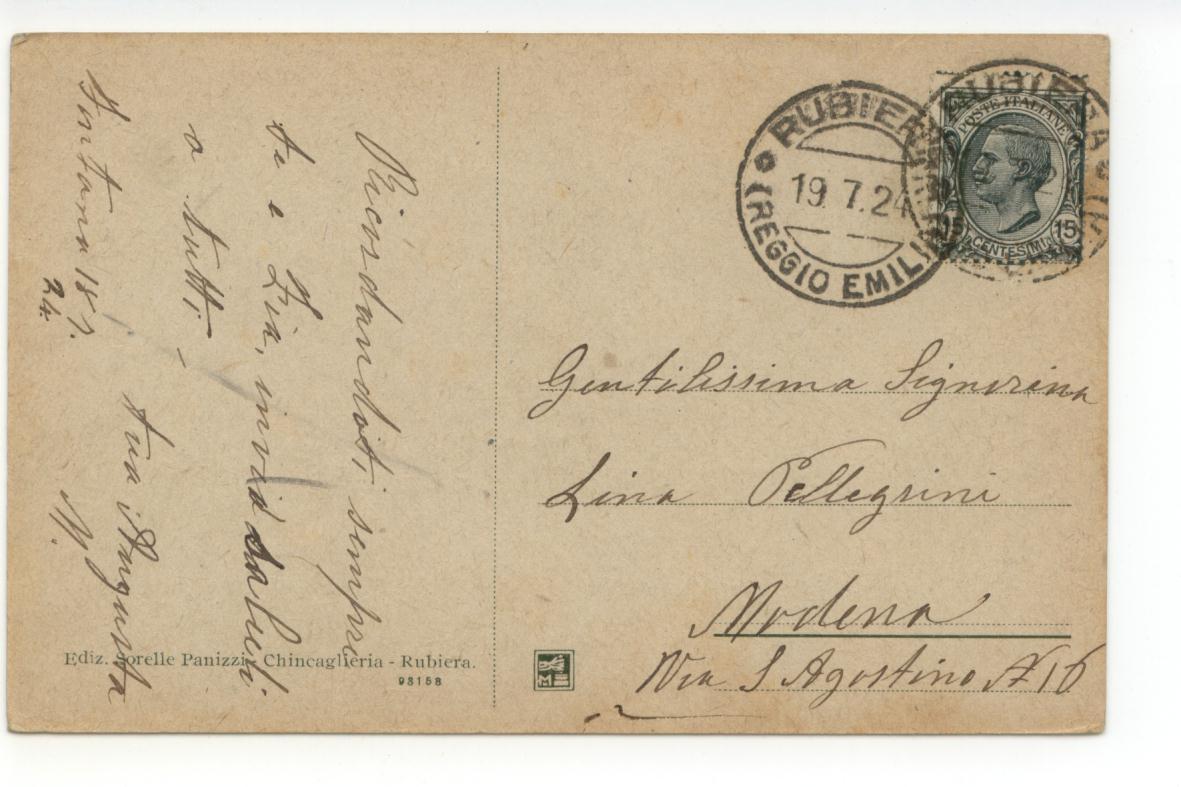 Ricordandoti sempre
te e Zia, invia saluti
a tutti –
tua Augusta
Fontana 18 7.
24.
RUBIERA
(REGGIO EMILIA
19.7.24
RUBIERA
POSTE ITALIANE
15 CENTESIMI 15
Gentilissima Signorina
Lina Pellegrini
Modena
Via S Agostino N 16
Ediz. Sorelle Panizzi - Chincaglieria - Rubiera.
93158
M